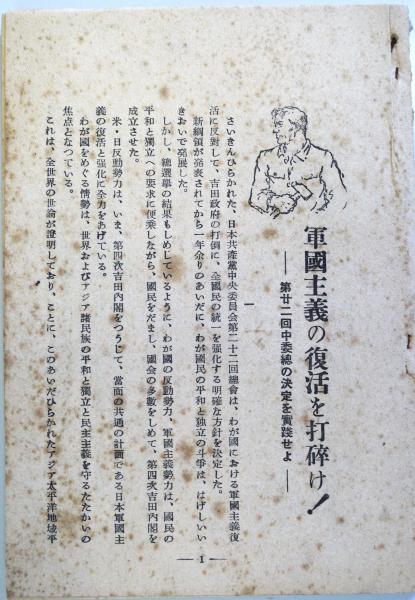 軍國主義の復活を打碎け!
―― 第廿二回中委總の決定を實踐せよ ――
一
さいきんひらかれた、日本共產黨中央委員會第二十二回總會は、わが國における軍國主義復
活に反對して、吉田政府の打倒に、全國民の統一を強化する明確な方針を決定した。
新綱領が発表されてから一年余りのあいだに、わが國民の平和と独立の斗爭は、はげしいい
きおいで発展した。
しかし、總選擧の結果もしめしているように、わが國の反動勢力、軍國主義勢力は、國民の
平和と獨立への要求に便乘しながら、國民をだまし、國会の多數をしめて、第四次吉田內閣を
成立させた。
米・日反動勢力は、いま、第四次吉田內閣をつうじて、當面の共通の計画である日本軍國主
義の復活と強化に全力をあげている。
わが國をめぐる情勢は、世界およびアジア諸民族の平和と獨立と民主主義を守るたたかいの
焦点となつている。
これは、全世界の世論が證明しており、ことに、このあいだひらかれたアジア太平洋地域平
― 1 ―